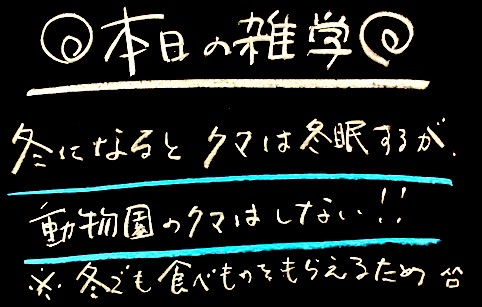 本日の雑学
冬になるとクマは冬眠するが、
動物園のクマはしない!!
※冬でも食べものをもらえるため